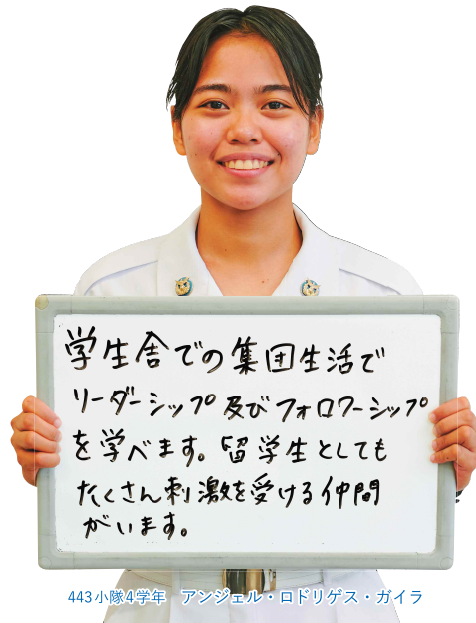 学生舎での集団生活で
リーダーシップ及びフォロワーシップ
を学べます。留学生としても
たくさん刺激を受ける仲間
がいます。
443小隊4学年　アンジェル・ロドリゲス・ガイラ